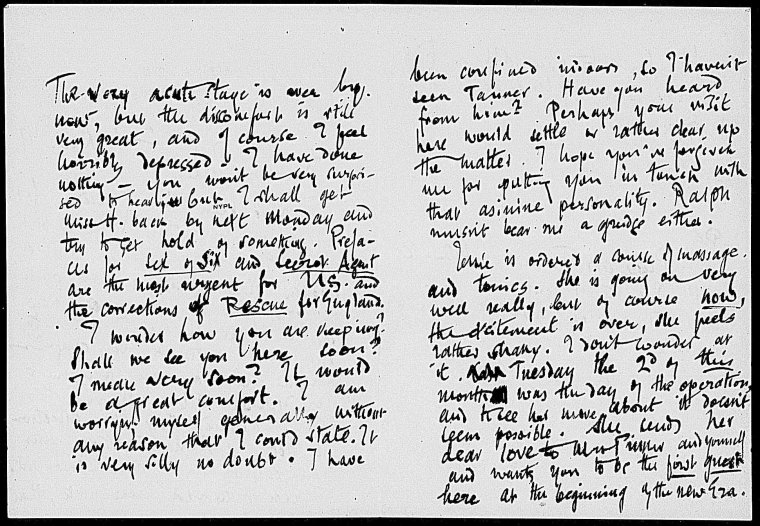 The very acute stage is over by
now, but the discomfort is still
very great, and of course I feel
horribly depressed. I have done
nothing – you won't be very surpri-
sed to hear; but I shall get
NYPL
Miss H. back by next Monday and
try to get hold of something. Prefa-
ces for Set of Six and Secret Agent
are the most urgent for U.S. and
the corrections of Rescue for England.
I wonder how you are keeping?
Shall we see you here soon?
I mean very soon? It would
be a great comfort. I am
worrying myself generally without
any reason that I could state. It
is very silly no doubt. I have
been confined indoors, so I haven't
seen Tanner. Have you heard
from him? Perhaps your visit
here would settle or rather clear up
the matter. I hope you've forgiven
me for putting you in touch with
that asinine personality. Ralph
mustn't bear me a grudge either.
Jessie is ordered a course of massage
and tonics. She is going on very
well really, but of course now,
the excitement is over, she feels
rather shaky. I don't wonder at
it. Tuesday the 2d of this
month was the day of the operation
and to see her move about it doesn't
seem possible. She sends her
dear love to Mrs Pinker and yourself
and wants you to be the first guest
here at the beginning of the new Era.